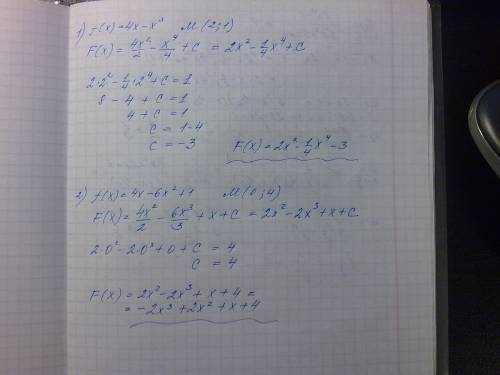 1) f(x)=4x-x³ M(2;1)
F(x)=4x²/2-x⁴/4+C = 2x²-1/4x⁴+C
2·2²-1/4·2⁴+C=1
8-4+C=1
4+C=1
C=1-4
C=-3
F(x)=2x²-1/4x⁴-3
2) f(x)=4x-6x²+1 M(0;4)
F(x)=4x²/2-6x³/3+x+C=2x²-2x³+x+C.
2·0²-2·0³+0+C=4
C=4
F(x)=2x²-2x³+x+4=
=-2x³+2x²+x+4